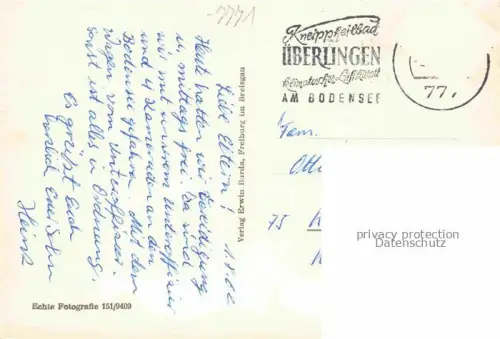 -7771
Kneippheilbad
ÜBERLINGEN
klimatischer Luftkurort
AM BODENSEE
77,
1.5.62
Liebe Eltern!
Heute hatten wir Vereidigung
u. mittags frei. Da sind
wir mit unserem Unteroffizier
und 4 Kameraden an den
Bodensee gefahren. Mit dem
Wagen vom Unteroffizier.
Sonst ist alles in Ordnung.
Es grüßt Euch
Euer Sohn
Heinz
Verlag Erwin Burda, Freiburg im Breisgau
Echte Fotografie 151/9409
Fam.
Otto
75 K
privacy protection
Datenschutz